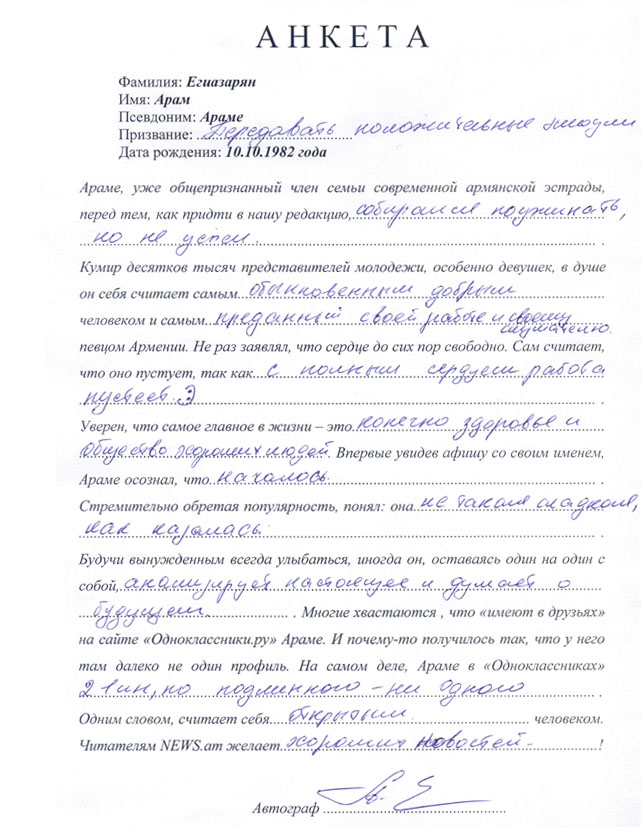 АНКЕТА
Фамилия: Егиазарян
Имя: Арам
Псевдоним: Араме
Призвание: Передавать положительные эмоции
Дата рождения: 10.10.1982 года
Араме, уже общепризнанный член семьи современной армянской эстрады,
перед тем, как придти в нашу редакцию, собирался поужинать,
но не успел.
Кумир десятков тысяч представителей молодежи, особенно девушек, в душе
он себя считает самым обыкновенным добрым
человеком и самым преданный своей работе и своему
слушателю.
певцом Армении. Не раз заявлял, что сердце до сих пор свободно. Сам считает,
что оно пустует, так как с полным сердцем работа
пустеет :)
Уверен, что самое главное в жизни – это конечно здоровье и
общество хороших людей. Впервые увидев афишу со своим именем,
Араме осознал, что началось.
Стремительно обретая популярность, понял: она не такая сладкая,
как казалась.
Будучи вынужденным всегда улыбаться, иногда он, оставаясь один на один с
собой, анализирует настоящее и думает о
будущем. . Многие хвастаются , что «имеют в друзьях»
на сайте «Одноклассники.ру» Араме. И почему-то получилось так, что у него
там далеко не один профиль. На самом деле, Араме в «Одноклассниках»
21 ин, но подлинного - ни одного .
Одним словом, считает себя открытым человеком.
Читателям NEWS.am желает хороших новостей. !
Автограф